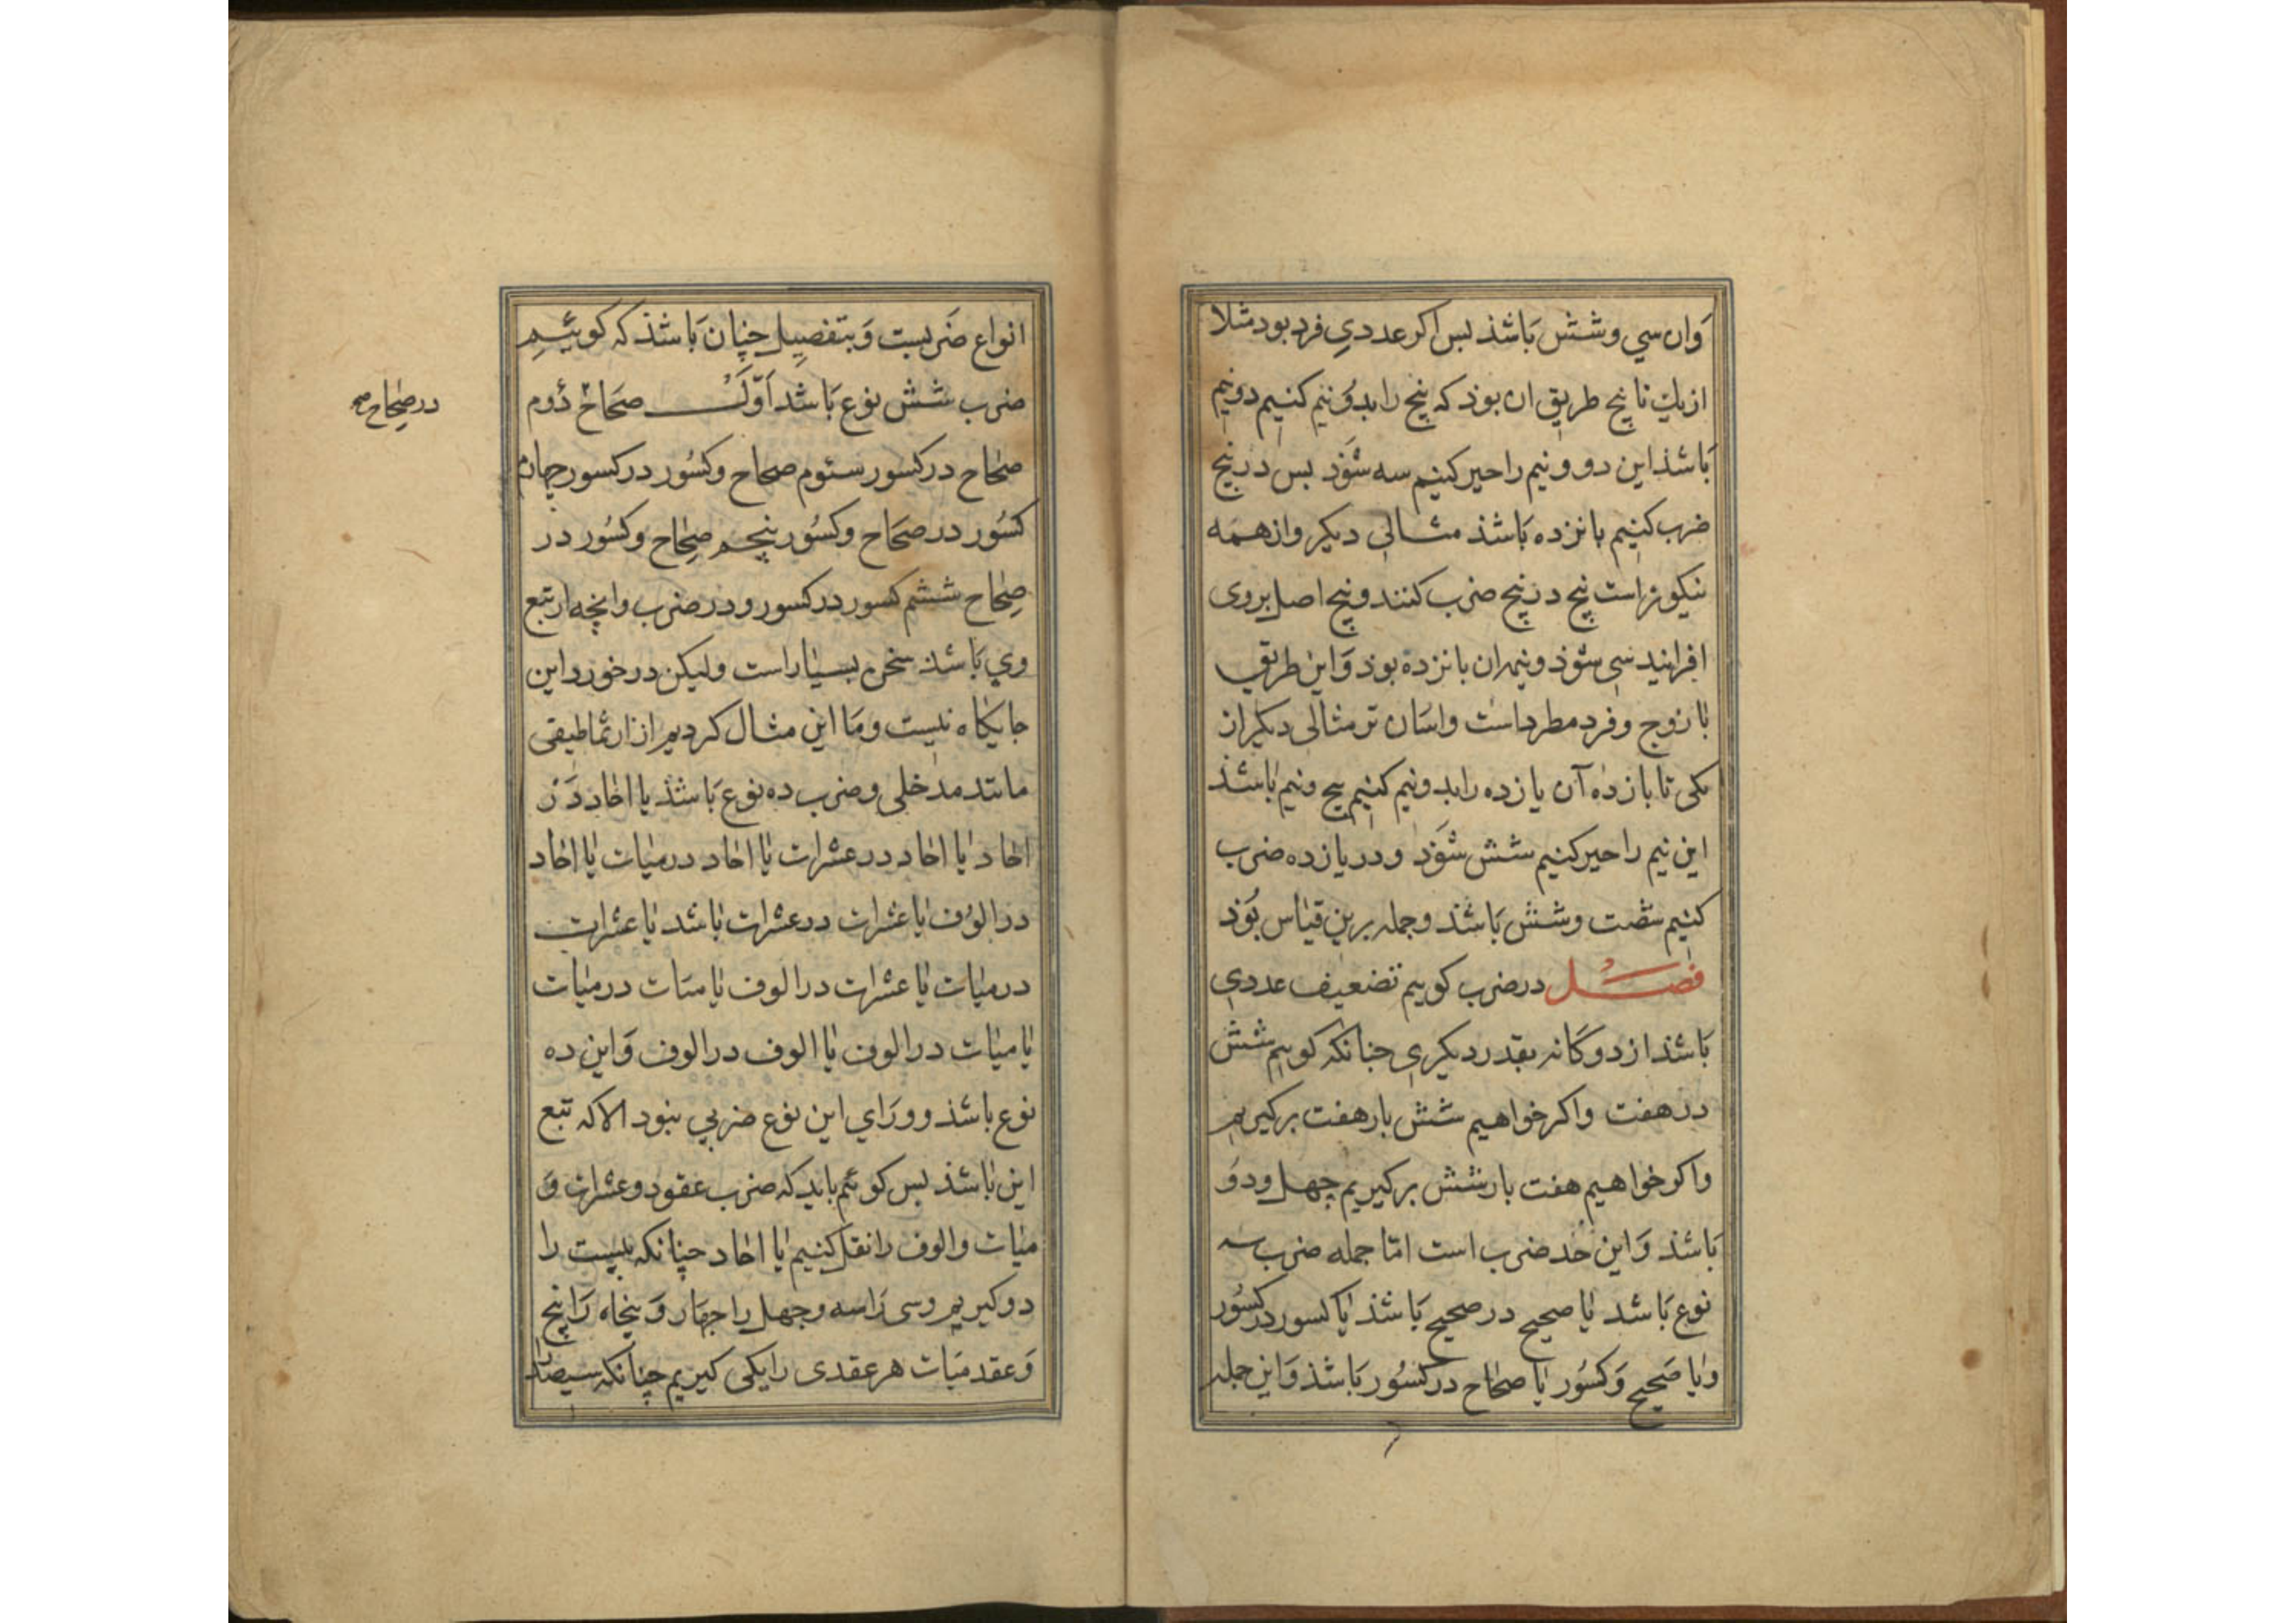 وان سي وشش باشذ بس اكر عددي فرد بود مثلا
از يك تا پنج طريق ان بوذ كه پنج را بدو نيم كنيم دو نيم
باشذ اين دو ونيم را جبر كنيم سه شوذ بس در پنج
ضرب كنيم پانزده باشذ مثالي ديكر واز همه
نيكوتر است پنج در پنج ضرب كنند وپنج اصل بروى
افزايند سى شوذ ونيم ان پانزده بوذ واين طريق
با زوج وفرد مطرد است واسان تر مثالى ديكر از
يكى تا يازده آن يازده را بدو نيم كنيم پنج ونيم باشذ
اين نيم را جبر كنيم شش شوذ ودر يازده ضرب
كنيم شصت وشش باشذ وجمله برين قياس بوذ
فصل در ضرب كوييم تضعيف عددي
باشذ از دوكانه بقدر ديكرى چنانكه كوييم شش
در هفت واكر خواهيم شش بار هفت بركيريم
واكر خواهيم هفت بار شش بركيريم چهل ودو
باشذ واين حد ضرب است امّا جمله ضرب سه
نوع باشد يا صحيح در صحيح باشذ يا كسور در كسور
ويا صحيح وكسور يا صحاح در كسور باشذ واين جمله
انواع ضربست وبتفصيل چنان باشذ كه كوييم
ضرب شش نوع باشد اوّل صحاح دوم
در صحاح صح
صحاح در كسور ستوم صحاح وكسور در كسور چهارم
كسور در صحاح وكسور پنجم صحاح وكسور در
صحاح ششم كسور در كسور ودر ضرب وانچه از تبع
وي باشذ سخن بسيار است وليكن در خورد اين
جايكاه نيست وما اين مثال كرديم از ارثماطيقى
مانند مدخلى وضرب ده نوع باشذ يا احاد در
احاد يا احاد در عشرات يا احاد در ميات يا احاد
در الوف يا عشرات در عشرات باشد يا عشرات
در ميات يا عشرات در الوف يا ميات در ميات
يا ميات در الوف يا الوف در الوف واين ده
نوع باشذ وورَاي اين نوع ضربي نبود الا كه تبع
اين باشذ بس كوئيم بايد كه ضرب عقود وعشرات و
ميات والوف را نقل كنيم يا احاد چنانكه بيست را
دو كيريم وسى را سه وچهل را چهار وپنجاه را پنج
وعقد ميات هر عقدى را يكى كيريم چنانكه سيصد را